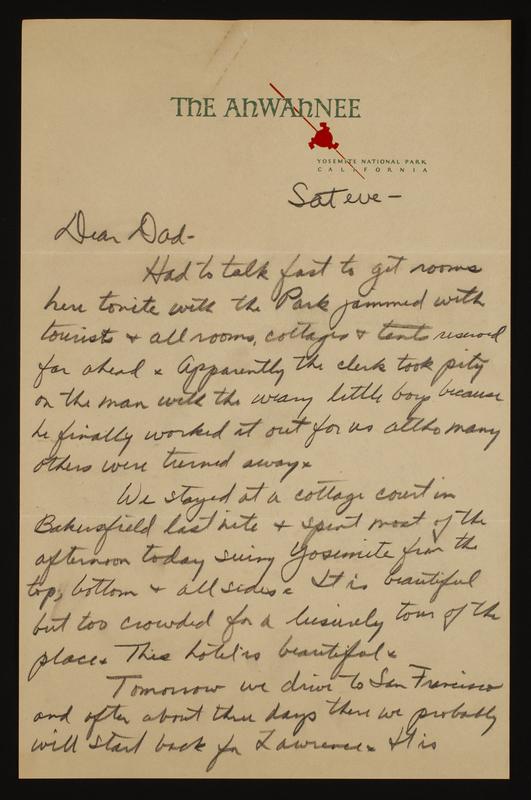 THE AHWAHNEE
YOSEMITE NATIONAL PARK
CALIFORNIA
Sat eve -
Dear Dad -
Had to talk fast to get rooms
here tonite with the Park jammed with
tourists & all rooms, cottages & tents reserved
far ahead x Apparently the clerk took pity
on the man with the weary little boys because
he finally worked it out for us altho many
others were turned away x
We stayed at a cottage court in
Bakersfield last nite & spent most of the
afternoon today seeing Yosemite from the
top, bottom & all sides x It is beautiful
but too crowded for a leisurely tour of the
place x This hotel is beautiful x
Tomorrow we drive to San Francisco
and after about three days there we probably
will start back for Lawrence x It is